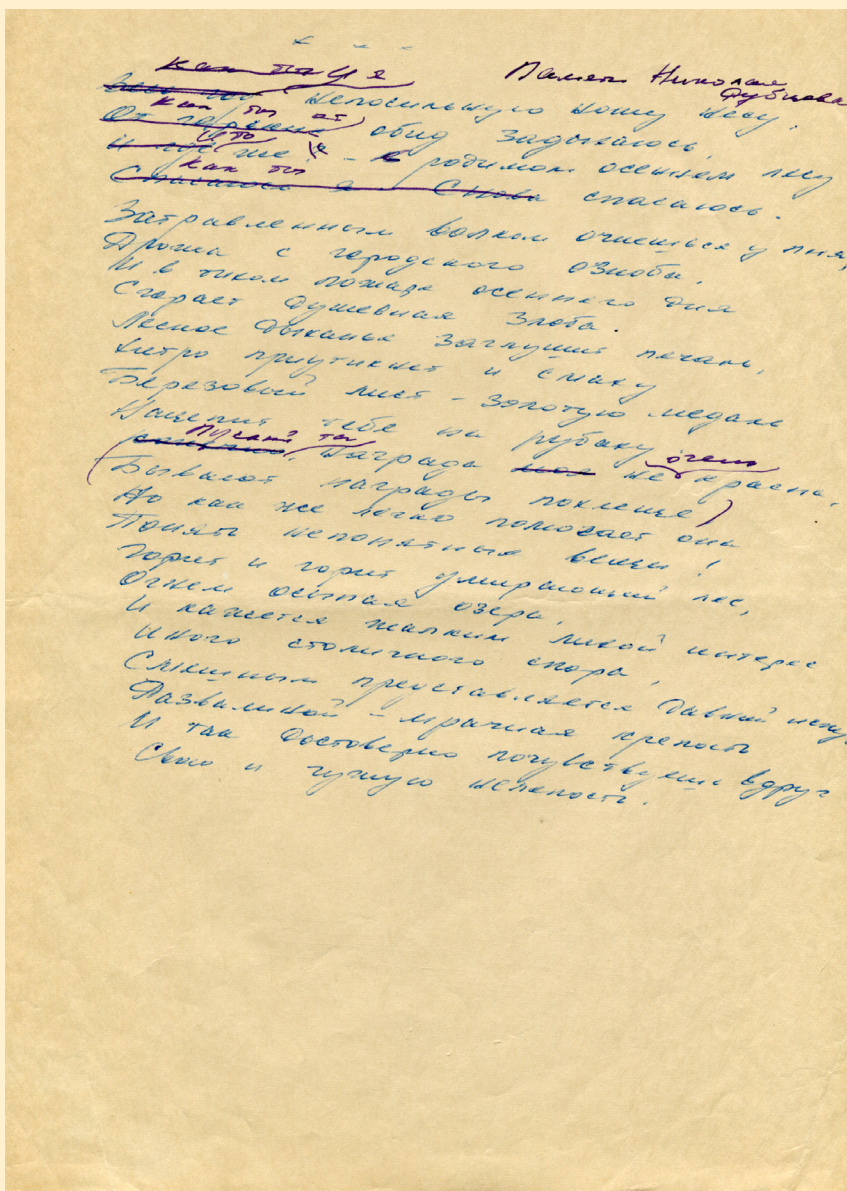 * * *
Памяти Николая
Рубцова
Как ты и я
непосильную ношу несу.
Как ты от
От городских обид задыхаюсь,
И что
И где же? – в родимом осеннем лесу
Как ты
Спасаюсь я Снова спасаюсь.
Затравленным волком очнешься у пня,
Дрожа с городского озноба,
И в тихом пожаре осеннего дня
Сгорает душевная злоба.
Лесное дыханье заглушит печаль,
Хитро приутихнет и смаху
Березовый лист – золотую медаль
Нацепит тебе на рубаху.
Пускай та очень
Награда моя не красна,
Бывают награды похлеще)
Но как же легко помогает она
Понять непонятные вещи!
Горит и горит умирающий лес,
Огнем осыпая озера,
И кажется жалким людской интерес
Иного столичного спора,
Смешным представляется давний испуг
Развалиной – мрачная крепость
И так достоверно почувствуешь вдруг
Свою и чужую нелепость.